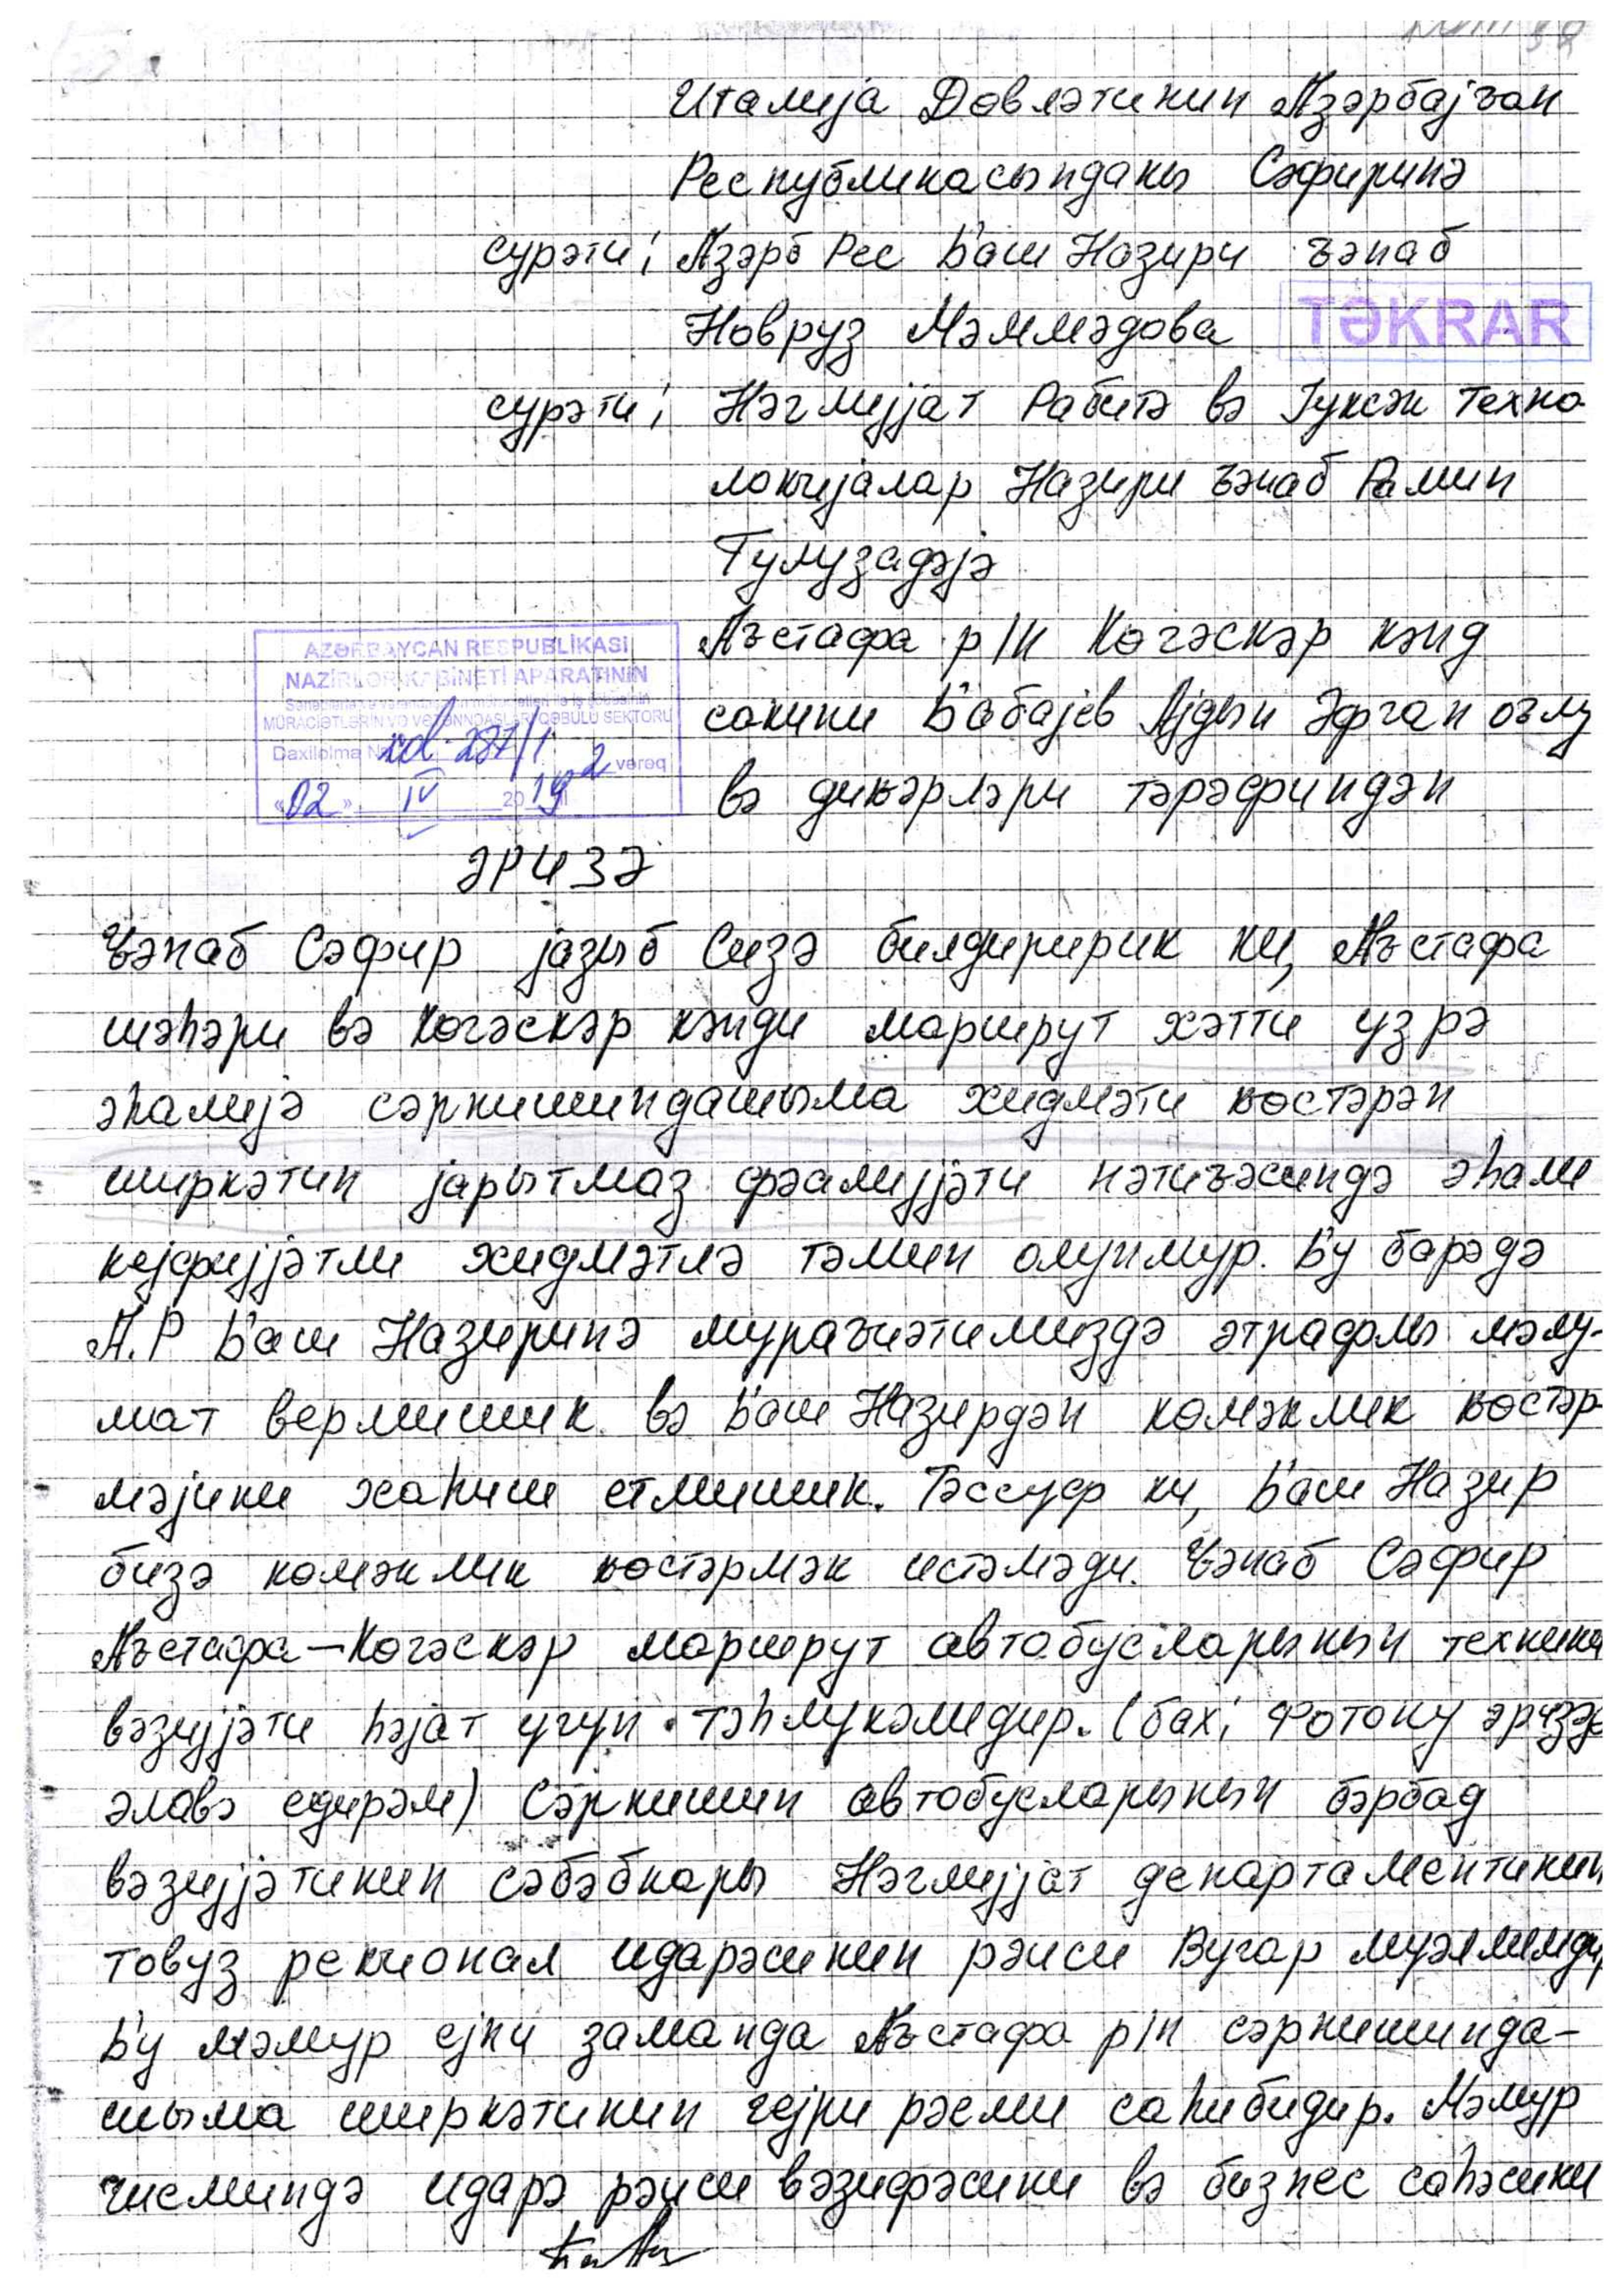 Италија Дөвләтинин Азәрбајҹан
Республикасындакы Сәфиринә
сурәти; Азәрб Рес Баш Назири ҹәнаб
Новруз Мәммәдова
TƏKRAR
сурәти; Нәглијјат Рабитә вә Јуксәк Техно
локијалар Назири ҹәнаб Рамин
Гулузадәјә
AZƏRBAYCAN RESPUBLİKASI
NAZİRLƏR KABİNETİ APARATININ
MÜRACİƏTLƏRİN VƏ VƏTƏNDAŞLARIN QƏBULU SEKTORU
Daxilolma № 2 vərəq
«02» IV 2019
Ағстафа р/н Көчәскәр кәнд
сакини Бабајев Ајдын Әфган оғлу
вә дикәрләри тәрәфиндән
ӘРИЗӘ
Ҹәнаб Сәфир јазыб Сизә билдиририк ки, Ағстафа
шәһәри вә Көчәскәр кәнди маршрут хәтти узрә
әһалијә сәрнишиндашыма хидмәти көстәрән
ширкәтин јарытмаз фәалијјәти нәтиҹәсиндә әһали
кејфијјәтли хидмәтлә тәмин олунмур. Бу барәдә
А.Р Баш Назиринә мураҹиәтимиздә әтрафлы мәлу-
мат вермишик вә Баш Назирдән көмәклик көстәр
мәјини хаһиш етмишик. Тәссуф ки, Баш Назир
бизә көмәклик көстәрмәк истәмәди. Ҹәнаб Сәфир
Ағстафа–Көчәскәр маршрут автобусларынын техники
вәзијјәти һәјат учун тәһлукәлидир. (бах; Фотону әризәјә
әлавә едирәм) Сәрнишин автобусларынын бәрбад
вәзијјәтинин сәбәбкары Нәглијјат департаментинин
товуз рекионал идарәсинин рәиси Вугар муәллимдир
Бу мәмур ејни заманда Ағстафа р/н сәрнишинда-
шыма ширкәтинин гејри рәсми саһибидир. Мәмур
чисминдә идарә рәиси вәзифәсини вә бизнес саһәсини